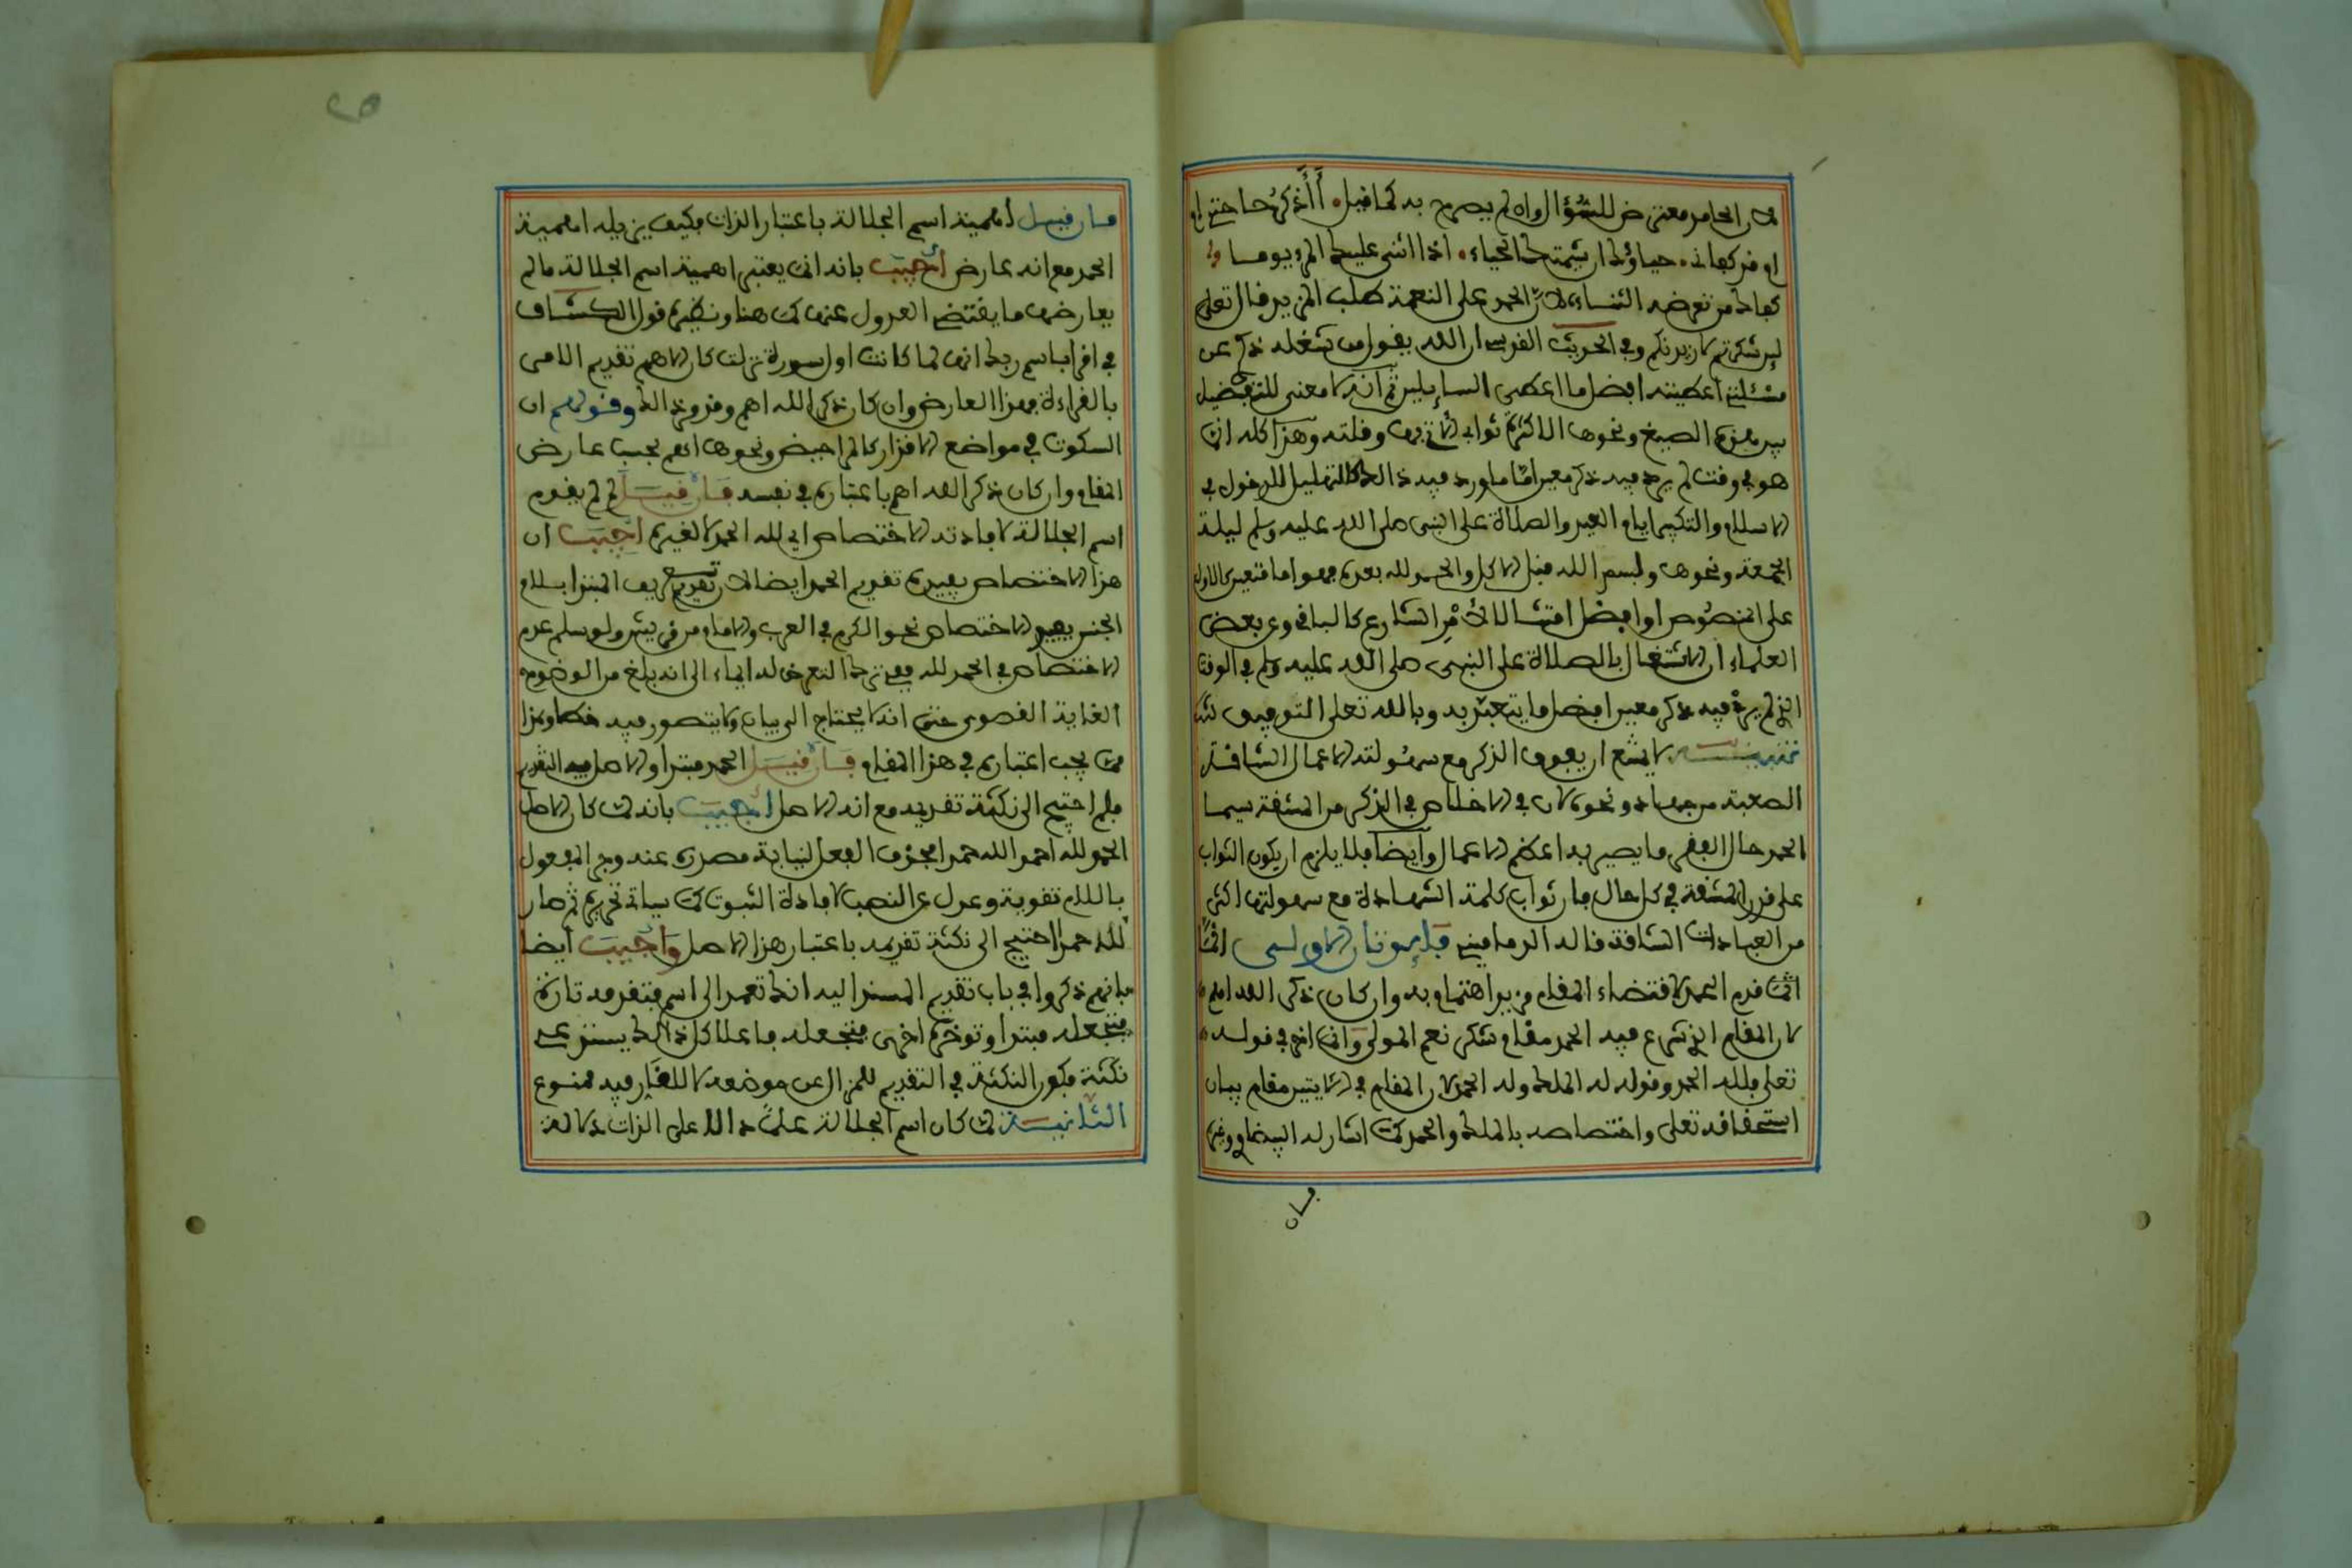 لان الحامد معترض للسؤال وان لم يصرح به كما قيل. أأذكر حاجتي ام
ام قد كفاني. حياؤك ان شيمتك الحياء. اذا اثنى عليك المرء يوما
كفاه من تعرضه الثناء لان الحمد على النعمة طلب المزيد قال تعلى
لين شكرتم لازيدنكم وفي الحديث القدسي ان الله يقول من شغله ذكري عن
مسئلتي اعطيته افضل ما اعطي السايلين ثم انه لا معنى للتفضيل
بين هذه الصيغ ونحوها الا كثرة ثواب وقلته وهذا كله انما
هو في وقت لم يرد فيه ذكر معين اما ما ورد فيه ذالك كالتهليل للدخول في
الاسلام والتكبير ايام العيد والصلاة على النبي صلى الله عليه وسلم ليلة
الجمعة ونحوها وبسم الله قبل الاكل والحمد لله بعده فهو اما متعين كالاول
على الخصوص او افضل امتثالا لأمر الشارع كالباقي وعن بعض
العلماء ان الاشتغال بالصلاة على النبي صلى الله عليه وسلم في الوقت
الذي لم يرد فيه ذكر معين افضل ما يتعبد به وبالله تعلى التوفيق
تنبيه لا يمتنع ان يفوق الذكر مع سهولته الاعمال الشاقة
الصعبة من جهاد ونحوه لان في الاخلاص في الذكر من المشقة سيما
الحمد حال الفقر ما يصير به اعظم الاعمال وأيضا فلا يلزم ان يكون الثواب
على قدر المشقة في كل حال فان ثواب كلمة الشهادة مع سهولتها اكثر
من العبادات الشاقة قاله الدماميني فايدتان الاولى انما
انما قدم الحمد لاقتضاء المقام مزيد اهتمام به وان كان ذكر الله اهم
لان المقام الذي شرع فيه الحمد مقام شكر نعم المولى وانما اخر في قوله
تعلى فلله الحمد وقوله له الملك وله الحمد لان المقام في الايتين مقام بيان
استحقاقه تعلى واختصاصه بالملك والحمد كما اشار له البيضاوي وغيره
فان
فان قيل أهمية اسم الجلالة باعتبار الذات فكيف يزيله اهمية
الحمد مع انه عارض أجيب بانه انما يعتبر اهمية اسم الجلالة ما لم
يعارضه ما يقتضي العدول عنه كما هنا ونظيره قول الكشاف
في اقرا باسم ربك انها لما كانت اول سورة نزلت كان الاهم تقديم الامر
بالقراءة فهذا العارض وان كان ذكر الله اهم وقولهم ان
السكوت في مواضع الاقذار كالمراحيض ونحوها اهم بحسب عارض
المقام وان كان ذكر الله اهم باعتباره في نفسه فان قيل لم لم يقدم
اسم الجلالة لافادته الاختصاص اي لله الحمد لا لغيره اجيب ان
هذا الاختصاص يفيده تقديم الحمد ايضا لان تعريف المبتدا بلام
الجنس يفيد الاختصاص نحو الكرم في العرب والامام من قريش ولو سلم عدم
الاختصاص في الحمد لله ففي ترك التعرض له ايماء الى انه بلغ من الوضوح
الغاية القصوى حتى انه لا يحتاج الى بيان ولا يتصور فيه خطا وهذا
مما يجب اعتباره في هذا المقام فان قيل الحمد مبتدا والاصل فيه التقديم
فلم احتيج الى نكتة تقديمه مع انه الاصل أجيب بانه لما كان الاصل
الحمد لله احمد الله حمدا فحذف الفعل لنيابة مصدره عنه وجر المفعول
باللام تقوية وعدل عن النصب لافادة الثبوت كما سياتي تحريره ثم صار
لله حمدا احتيج الى نكتة تقديمه باعتبار هذا الاصل وأجيب أيضا
بانهم ذكروا في باب تقديم المسند اليه انك تعمد الى اسم فتقدمه تارة
فتجعله مبتدا وتوخره اخرى فتجعله فاعلا كل ذالك يستدعي
نكتة فكون النكتة في التقديم للمزال عن موضعه لا للقار فيه ممنوع
الثانية لما كان اسم الجلالة علما دالا على الذات دلالة